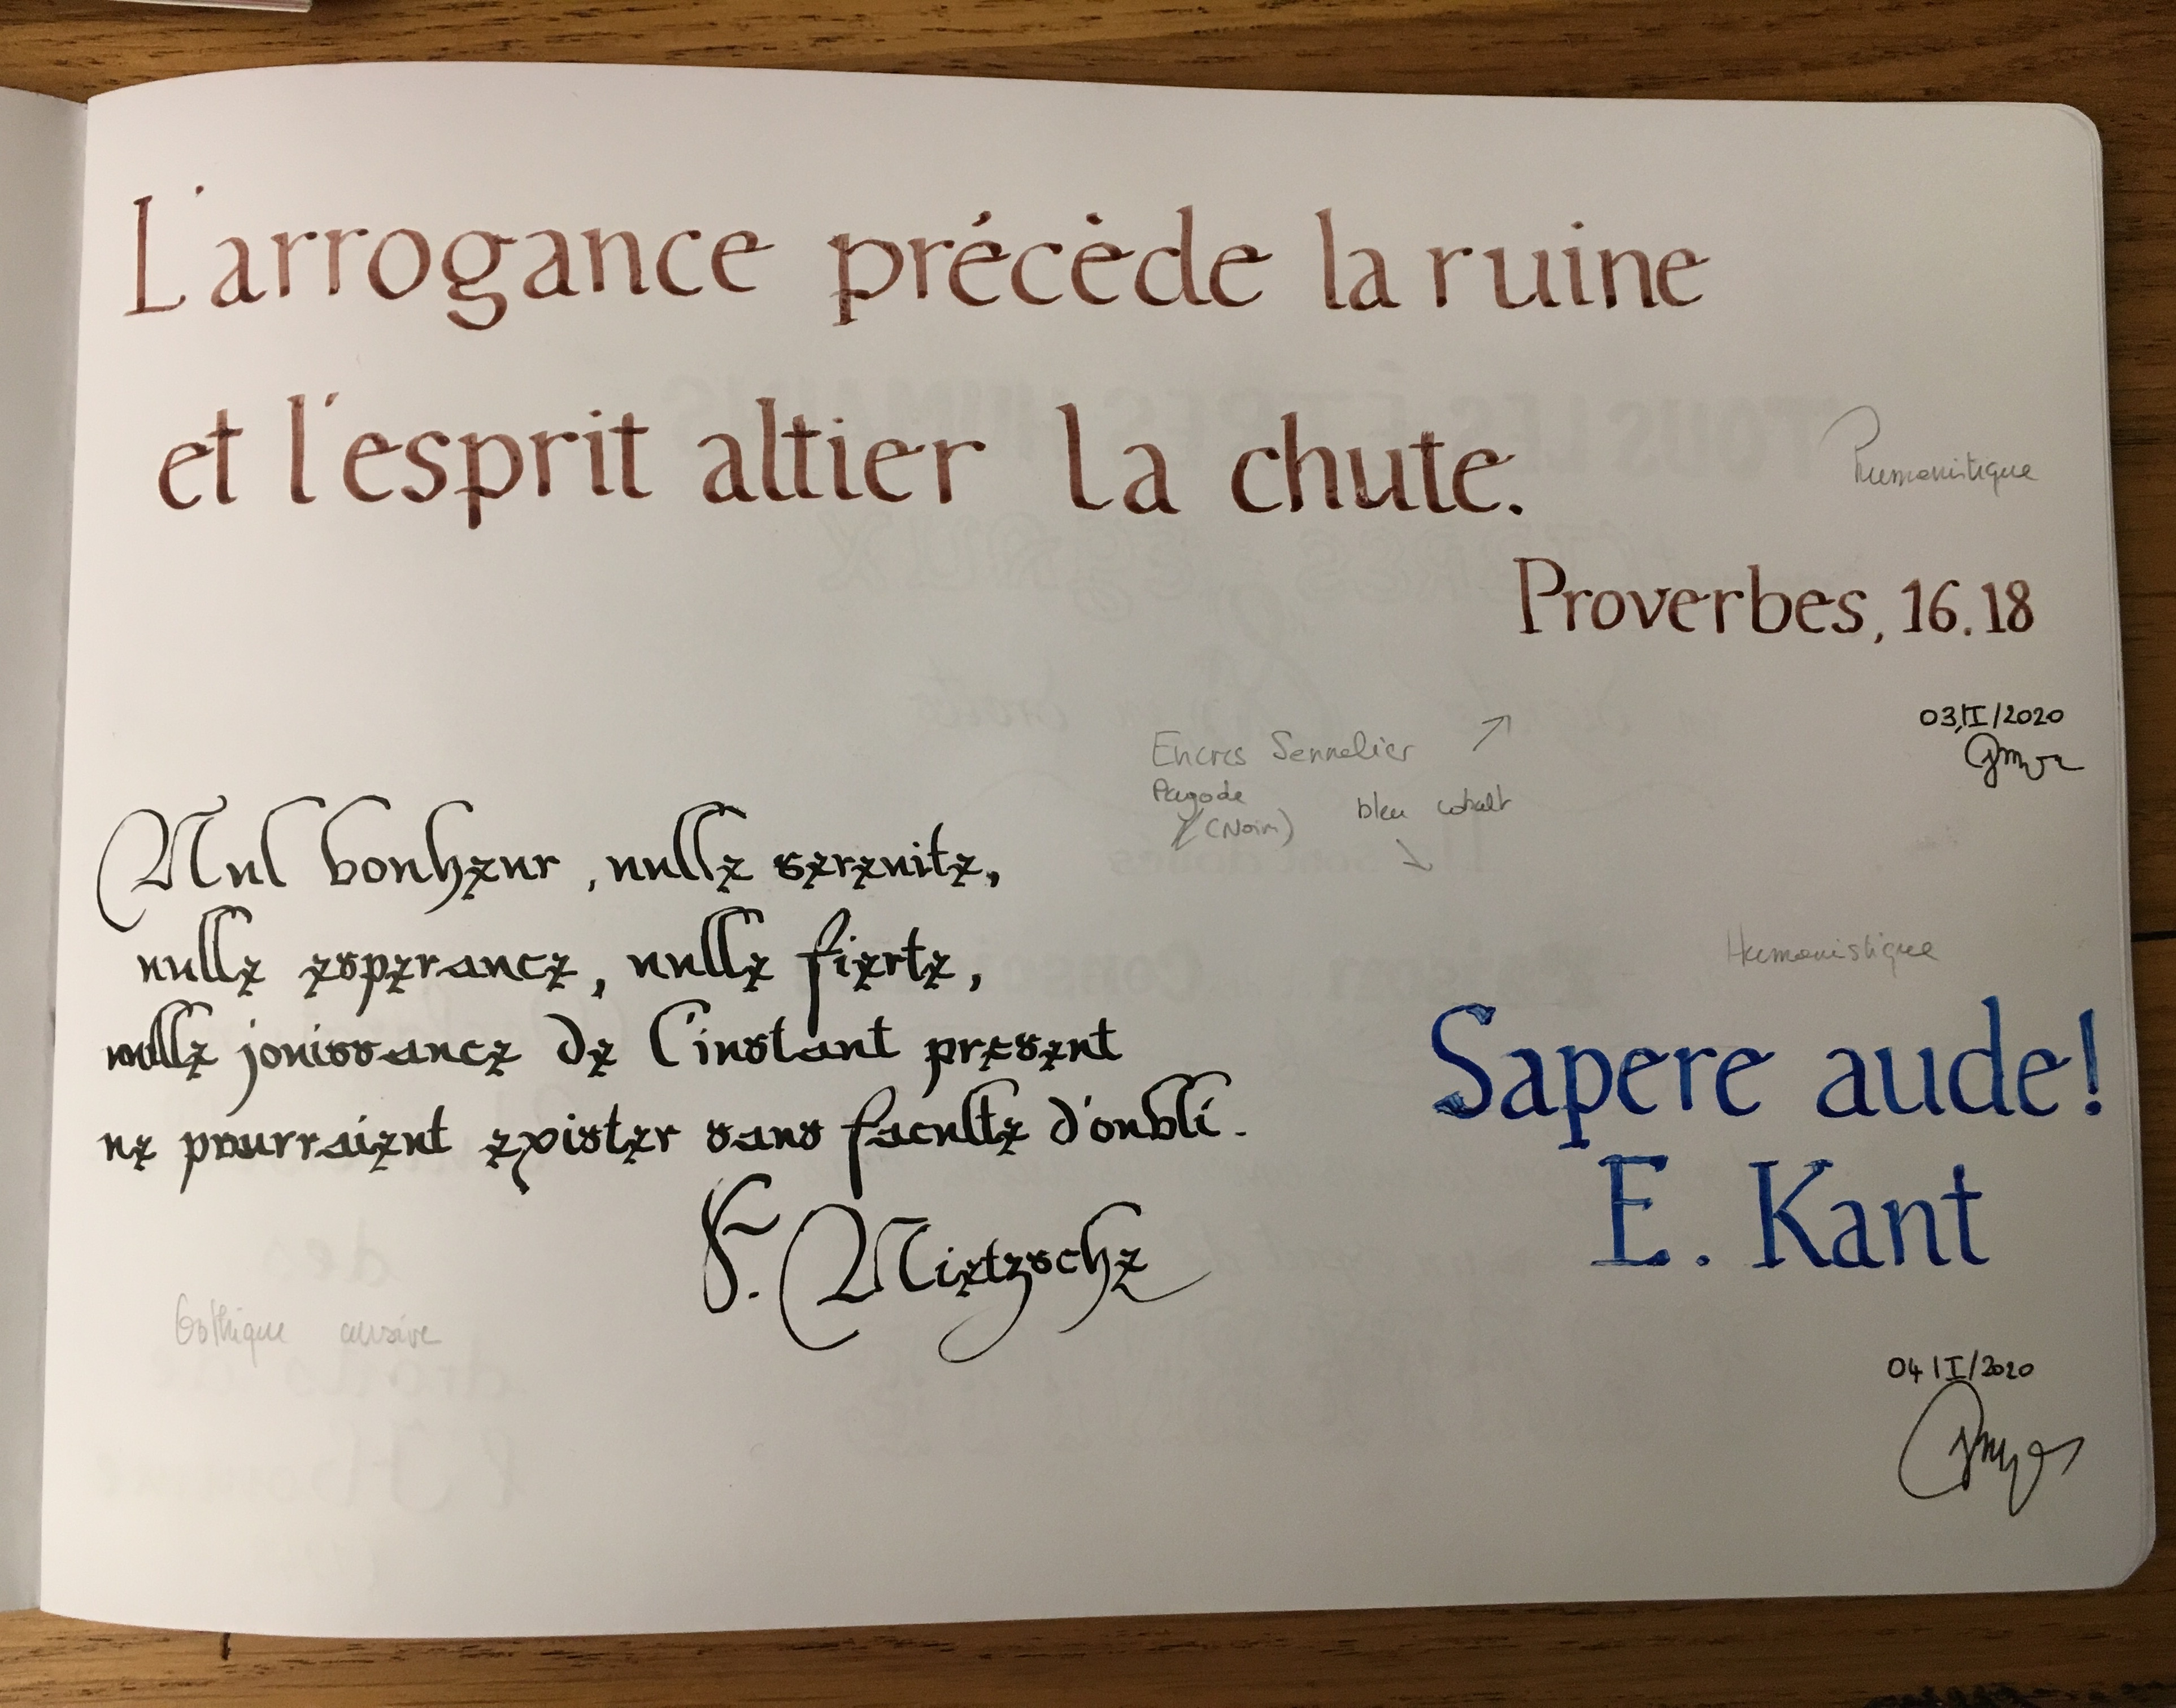 L'arrogance précède la ruine
et l'esprit altier la chute.
Humanistique
Proverbes, 16.18
03/I/2020
Encres Sennelier
Pagode
(Noir)
bleu cobalt
Nul bonheur, nulle serenite,
nulle esperance, nulle fierte,
nulle jouissance de l'instant present
ne pourraient exister sans faculte d'oubli.
F. Nietzsche
Gothique cursive
Humanistique
Sapere aude!
E. Kant
04/I/2020